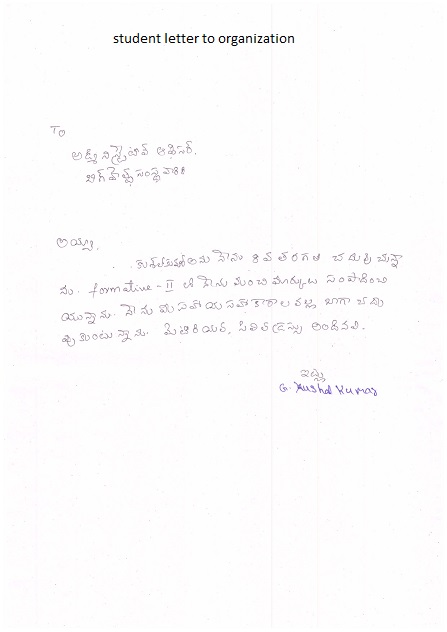 student letter to organization
To
అడ్మినిస్ట్రేటివ్ ఆఫీసర్,
బిగ్ హెల్ప్ సంస్థ వారికి
అయ్యా,
నేను 8వ తరగతి చదువుచున్నా
ను. formative - II లో నేను మంచి మార్కులు సంపాదించి
యున్నాను. నేను మీ సహాయ సహకారాల వల్ల బాగా చదు
వుకుంటున్నాను. మెటీరియల్, సివిల్ డ్రస్సు అందినవి.
ఇట్లు
G. Kushal Kumar